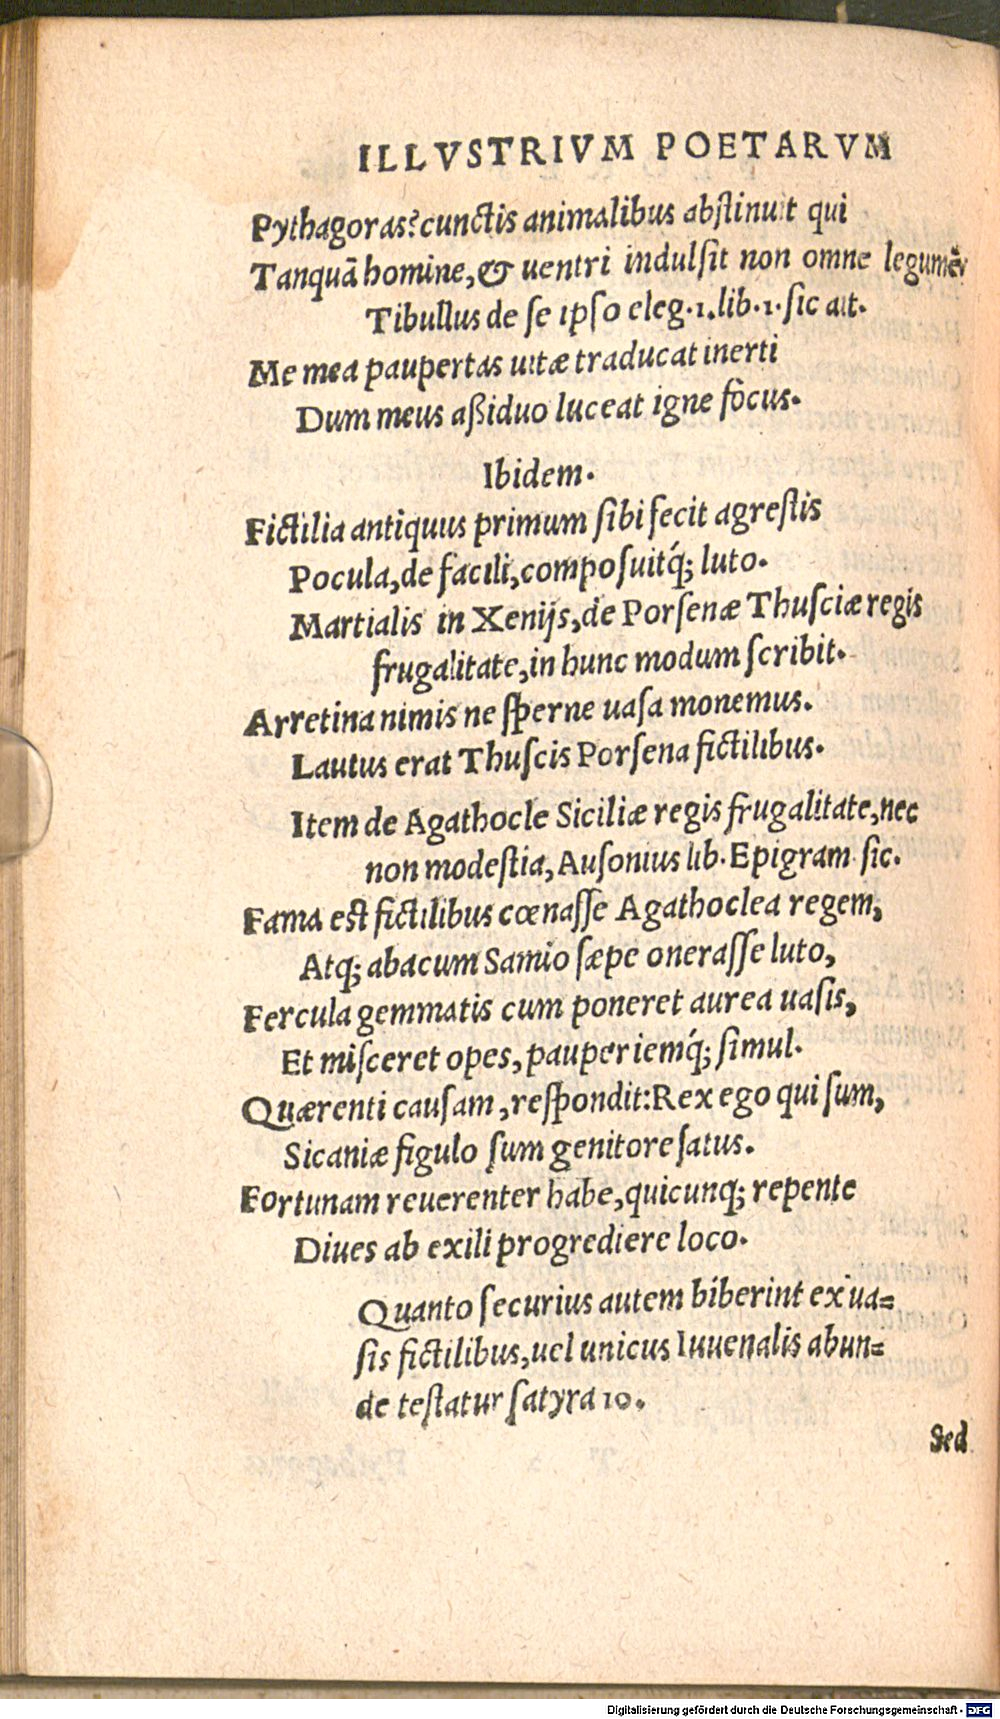 ILLVSTRIVM POETARVM
Pythagoras? cunctis animalibus abstinuit qui
Tanquā homine, & uentri indulsit non omne legumē
Tibullus de se ipso eleg. 1. lib. 1. sic ait.
Me mea paupertas uitæ traducat inerti
Dum meus aßiduo luceat igne focus.
Ibidem.
Fictilia antiquus primum sibi fecit agrestis
Pocula, de facili, composuitq́; luto.
Martialis in Xenijs, de Porsenæ Thusciæ regis
frugalitate, in hunc modum scribit.
Arretina nimis ne sperne uasa monemus.
Lautus erat Thuscis Porsena fictilibus.
Item de Agathocle Siciliæ regis frugalitate, nec
non modestia, Ausonius lib. Epigram sic.
Fama est fictilibus cœnasse Agathoclea regem,
Atq; abacum Samio sæpe onerasse luto,
Fercula gemmatis cum poneret aurea uasis,
Et misceret opes, pauperiemq́; simul.
Quærenti causam, respondit: Rex ego qui sum,
Sicaniæ figulo sum genitore satus.
Fortunam reuerenter habe, quicunq; repente
Diues ab exili progrediere loco.
Quanto securius autem biberint ex ua=
sis fictilibus, uel unicus Iuuenalis abun=
de testatur satyra 10.
Sed
Digitalisierung gefördert durch die Deutsche Forschungsgemeinschaft - DFG